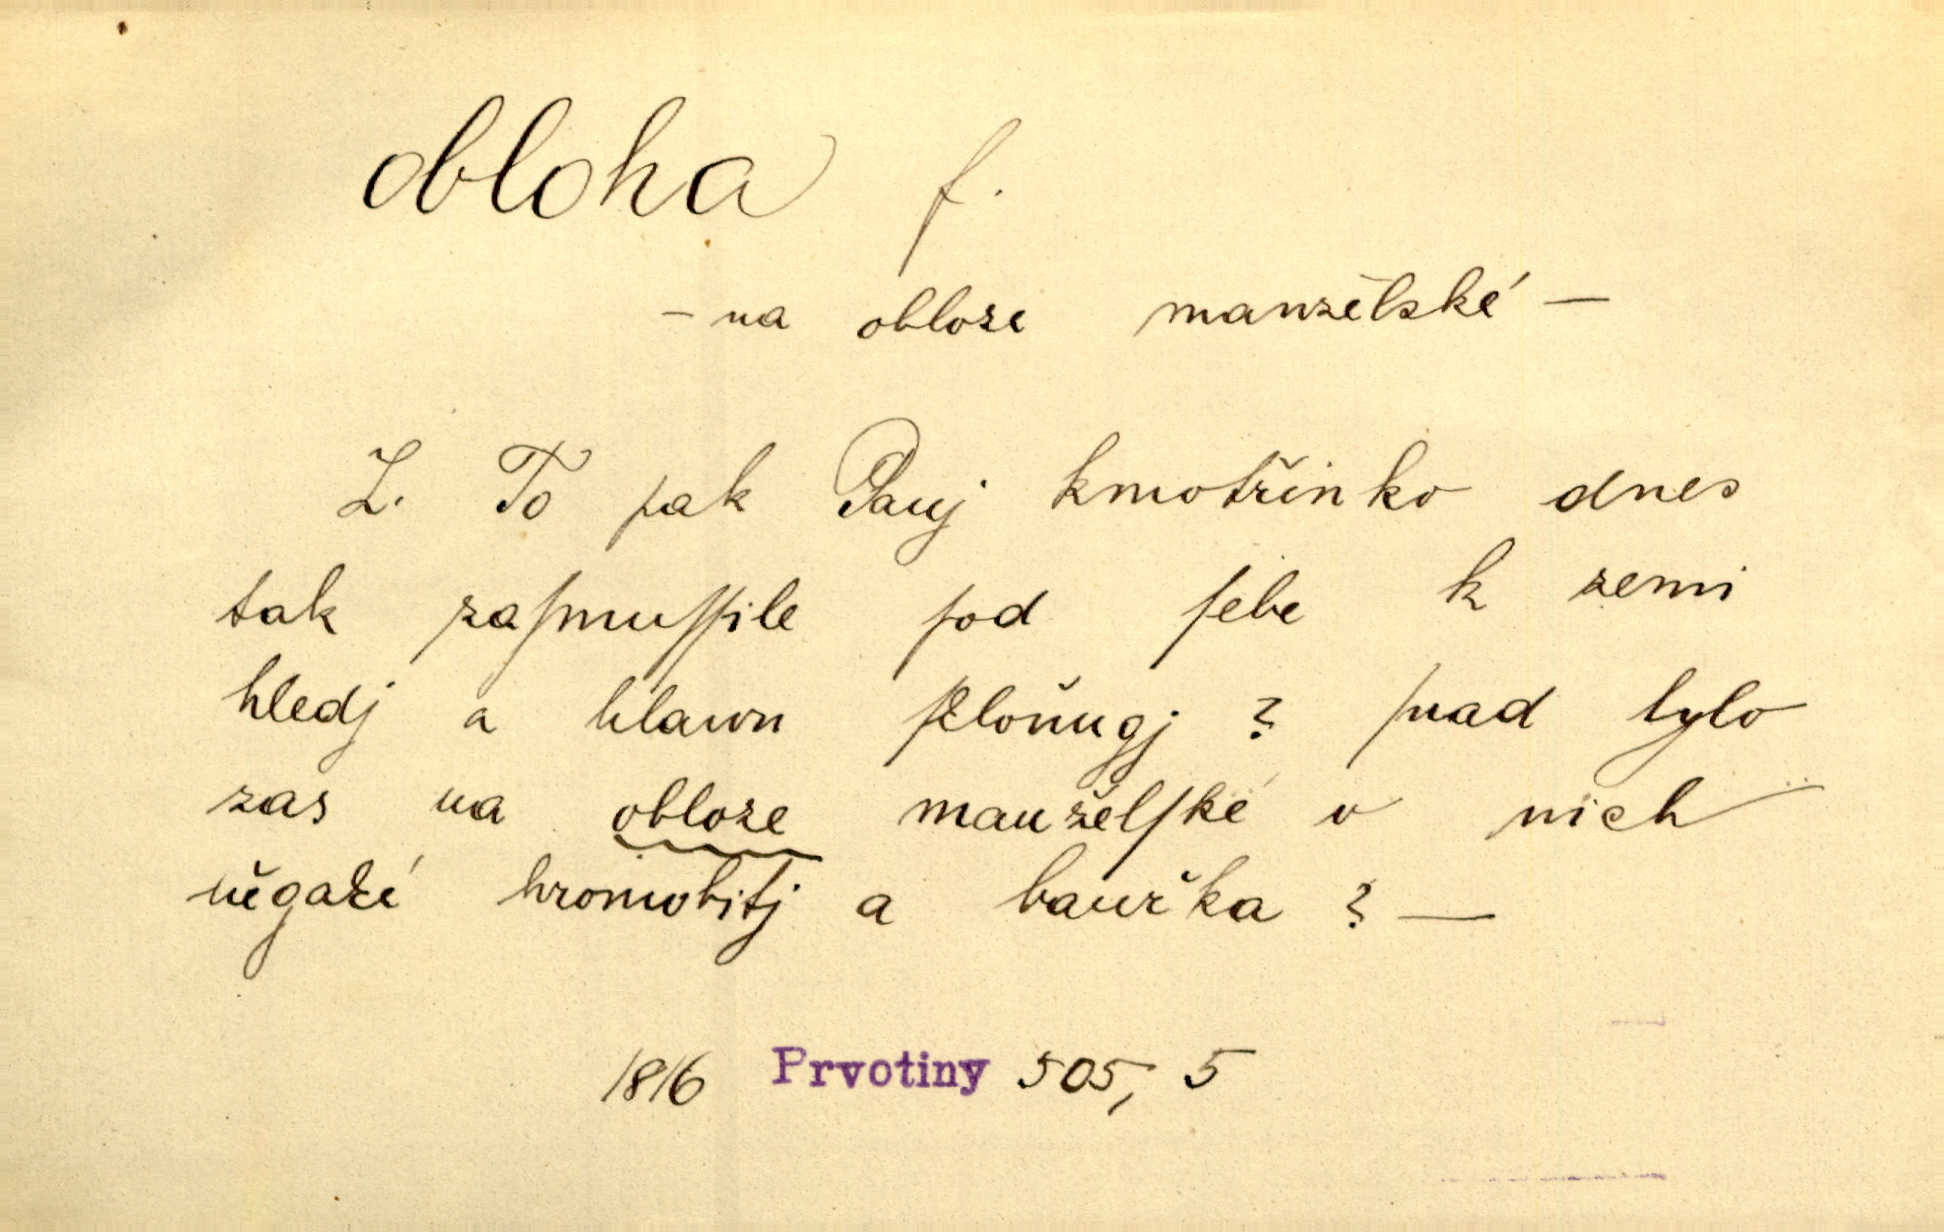 obloha f.
– na obloze manželské –
Z. To pak Panj kmotřinko dnes
tak zaſmuſſile pod ſebe k zemi
hledj a hlawu ſkloňugj ? ſnad bylo
zas na obloze manželſké u nich
něgaké hromobitj a bauřka ? —
1816 Prvotiny 505, 5